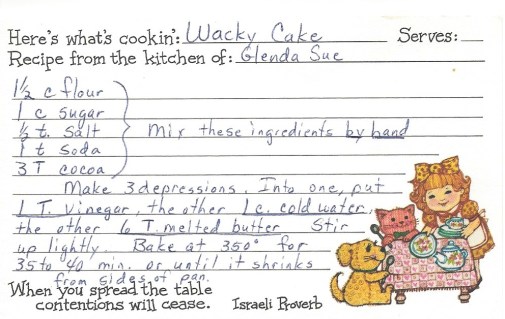 Here's what's cookin': Wacky Cake Serves:
Recipe from the kitchen of: Glenda Sue
1½ c flour
1 c sugar
½ t. salt
1 t soda
3 T cocoa
Mix these ingredients by hand
Make 3 depressions. Into one, put
1 T. vinegar, the other 1 c. cold water,
the other 6 T. melted butter. Stir
up lightly. Bake at 350° for
35 to 40 min. or until it shrinks
from sides of pan.
When you spread the table
contentions will cease. Israeli Proverb